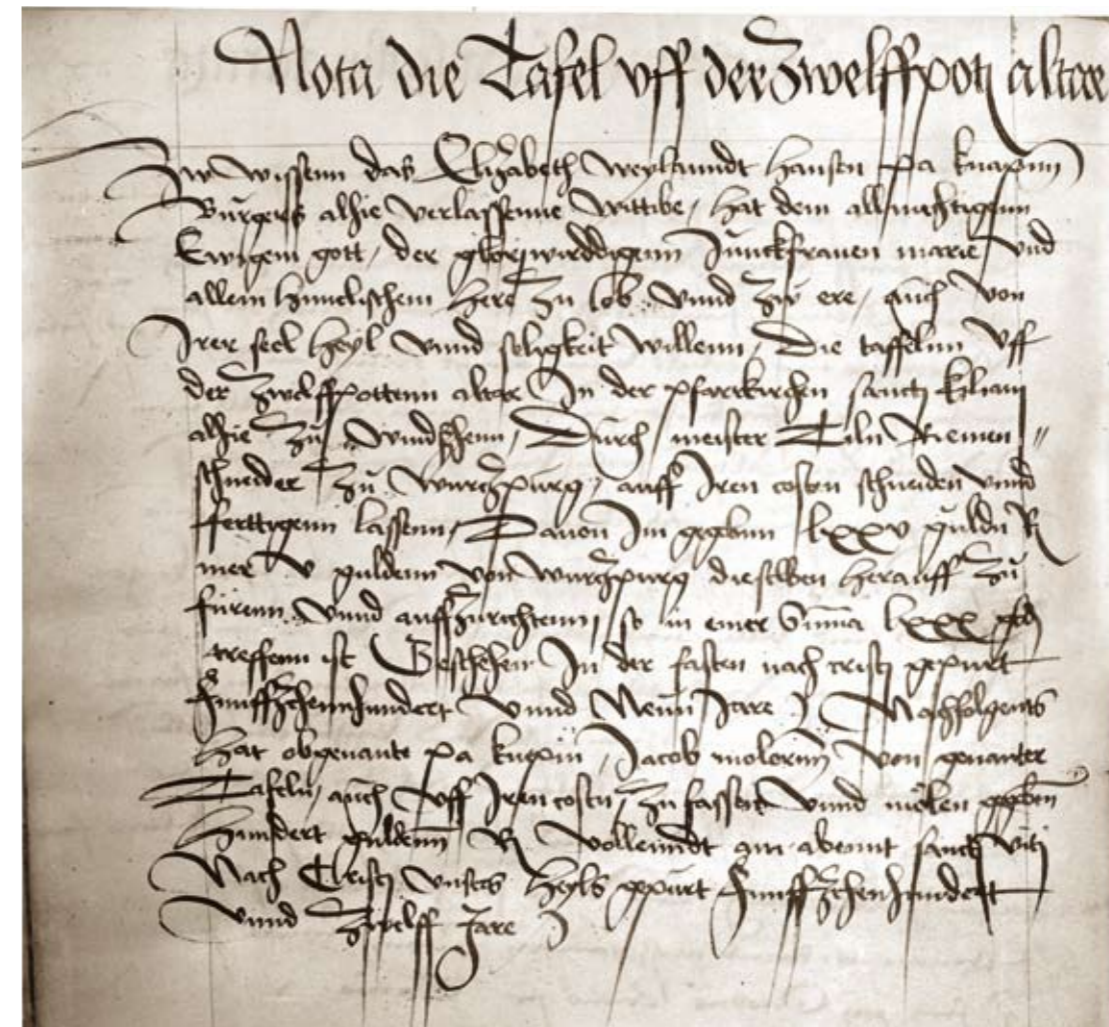 Nota die Tafel uff der Zwelffpotz altare
Zw wissenn das Elizabeth Weylanndt Hansen Ba knapinn
Burgers alhie verlassenne Wittibe / hat dem allmechtigenn
Ewigem gott / der glorj wirddigenn Junckfrauen marie und
allem himelischem Here zu lob vnnd zw ere / auch von
Irer seel heyl vnnd seligkeit willenn / Die taffelnn vff
der zwelffpottenn altare In der pfarrkirchen sancti kiliani
alhie zu Windsheim / Durch meister Tiln Riemen //
schneider zu Wurtzpurg / auff Iren costen schneiden vnnd
ferttygenn lassenn / Dauon Im gegebenn lxxv guldn R
mer v guldenn von Wurtzpurg dieselben herauff zu
fürenn vnnd auffzurichtenn / so in einer Summa lxxx
treffenn ist Geschehen In der fasten nach cristi gepurt
Funffzehennhundert vnnd Neun Jare Nachfolgents
hat obgenante Ba knapin / Jacob molernn von genanter
Tafeln / auch vff Iren costn / zu fassen vnnd molen gegebenn
Hundert guldenn R volleindt am abennt sancti viti
Nach Christi vnsers heyls gepurt Funffzehenhundert
vnnd Zwelff Jare